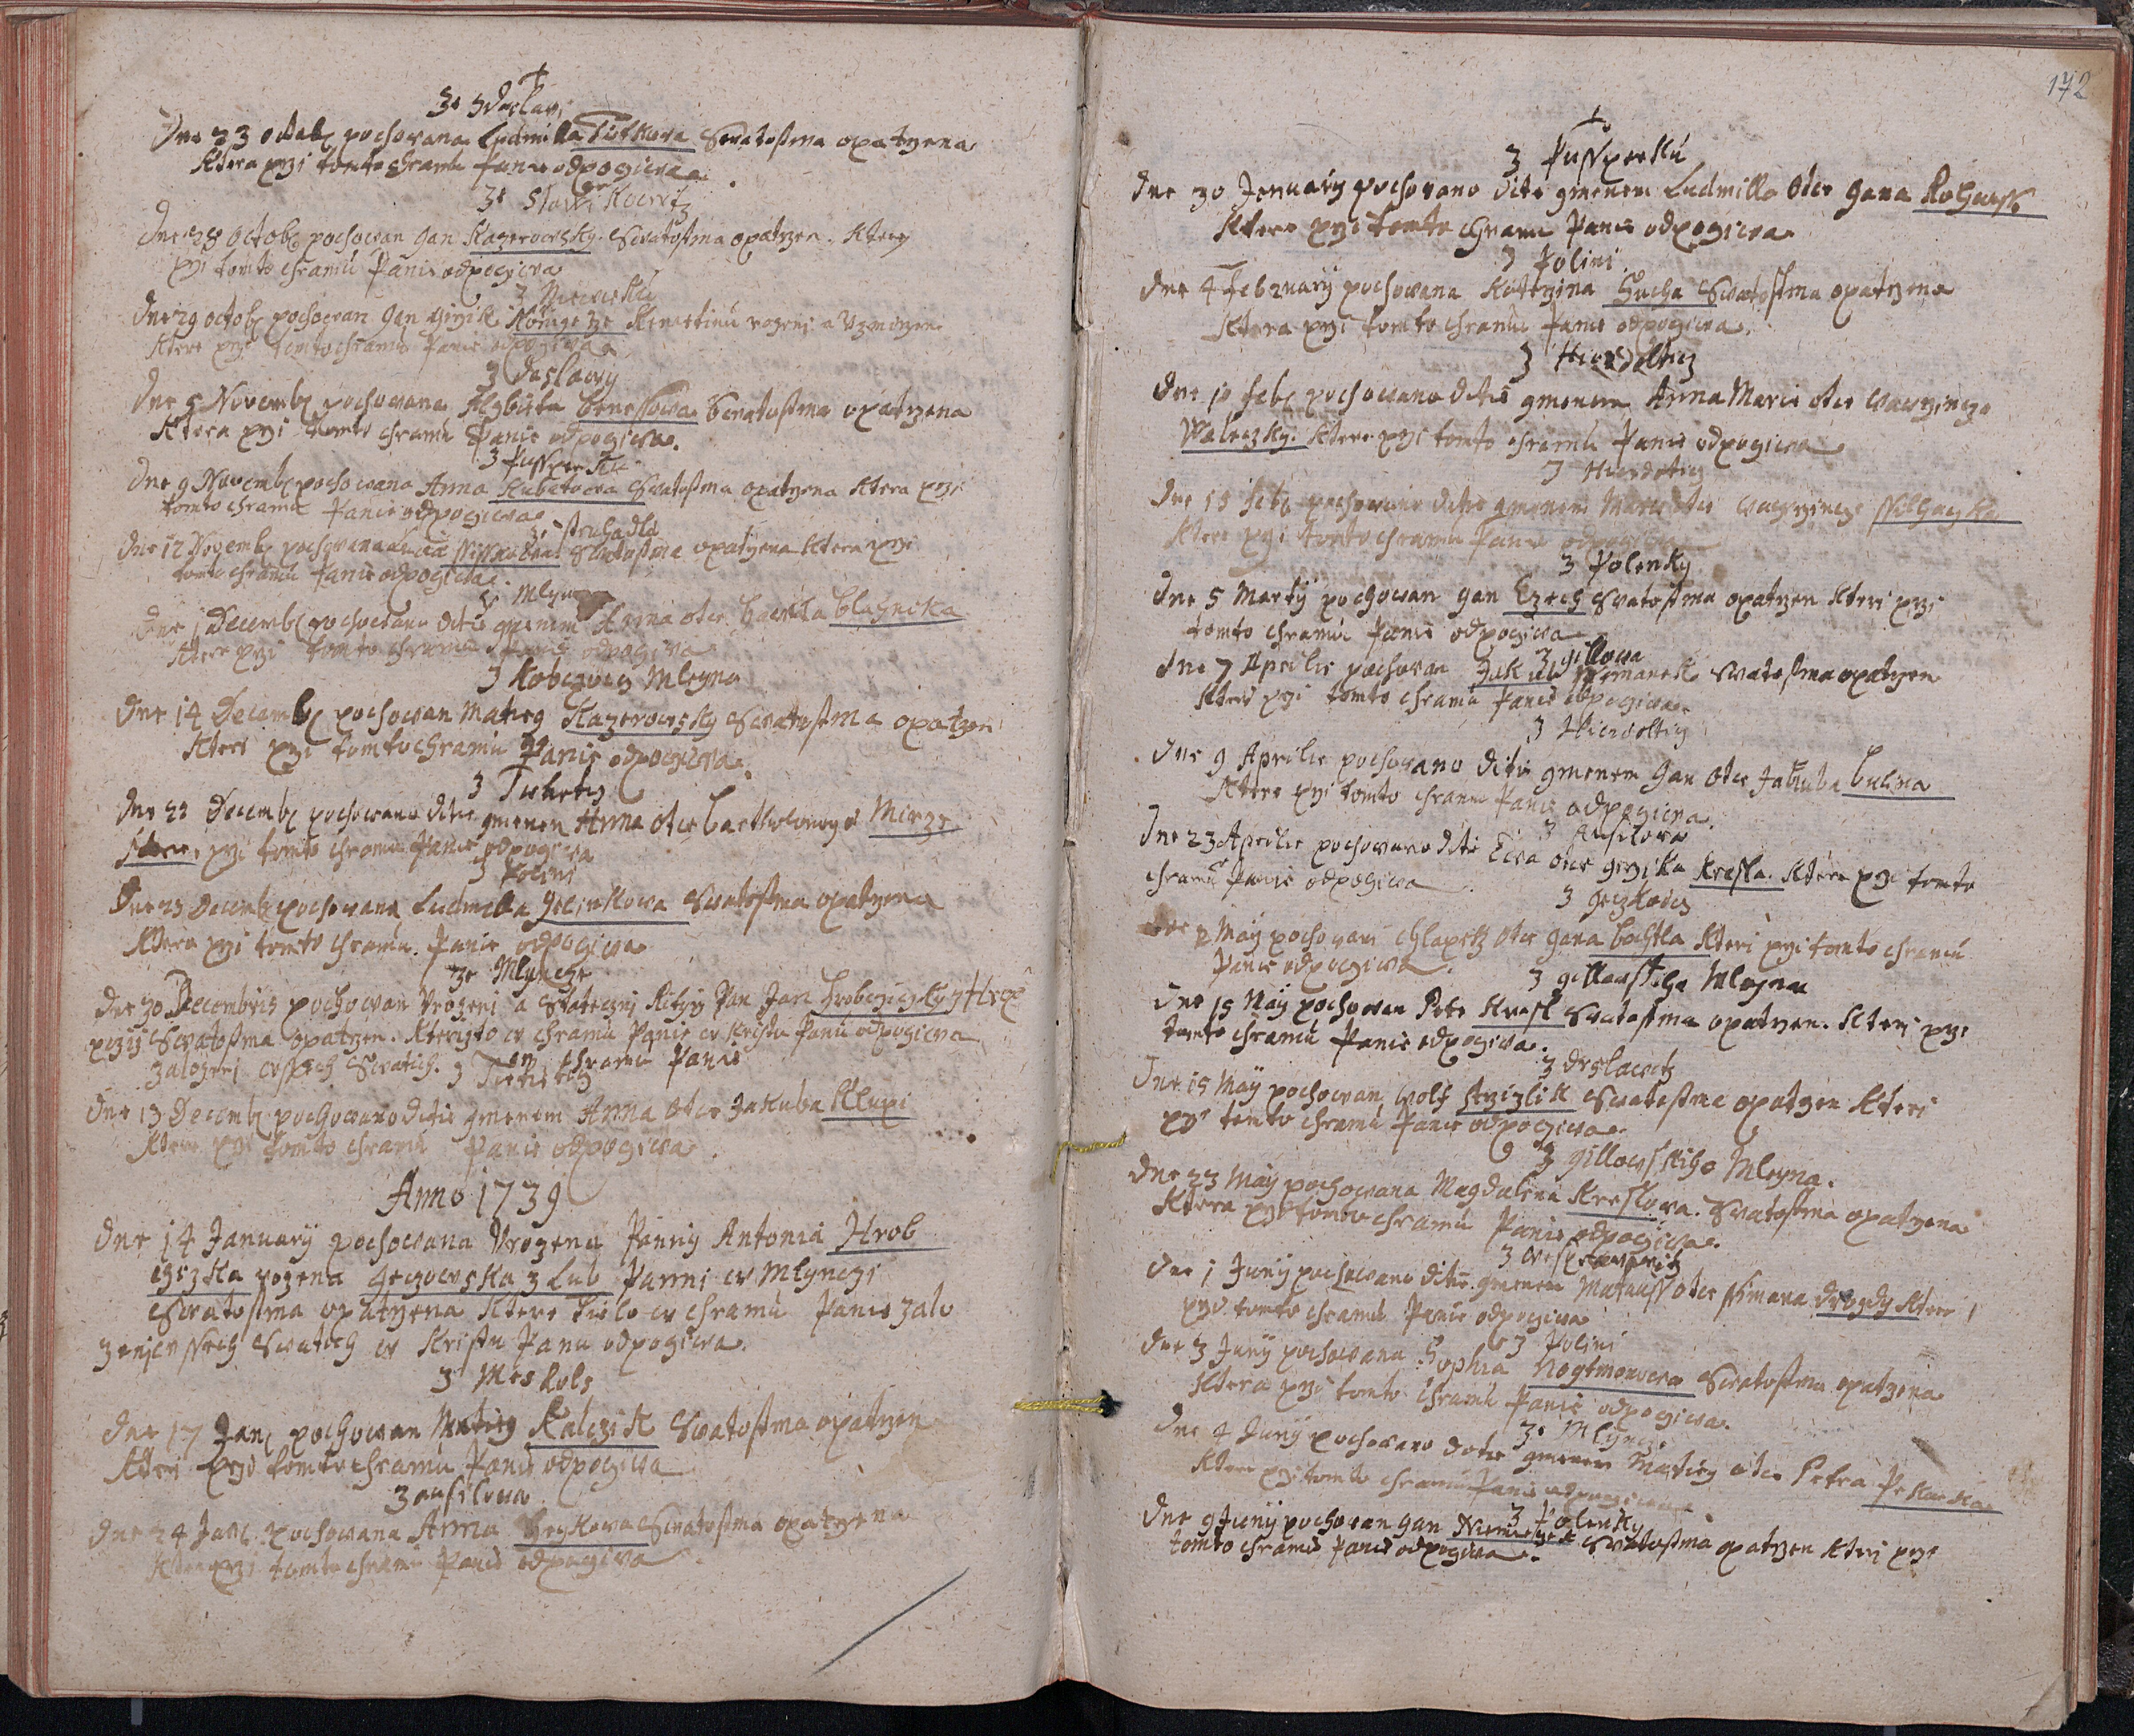 Ze Zdaslawi
Dne 23 octob pochowana Ludmilla Tistkowa Swatostma opatrzena
Ktera przi tomto chramu Panie odpogiwa.
Ze Slawikowitz
Dne 28 octob pochowan Gan Kazerowsky Swatostma opatrzen. Ktery
przi tomto chramu Panie odpogiwa
Dne 29 octob pochowan Gan Girzik
Ktere przi tomto chramu Panie odpogiwa
Z Daslawy
Dne 5 Novemb pochowana Alzbieta Benessowa Swatostma opatrzena
Ktera przi tomto chramu Panie odpogiwa.
Z Pussperku
Dne 9 Novemb pochowana Anna Kubatowa Swatostma opatrzena Ktera przi
tomto chramu Panie odpogiwa
Ze struhadla
Dne 12 Novemb pochowana Swatostma opatrzena Ktera przi
tomto chramu Panie odpogiwa
Dne 1 Decemb pochowano ditie gmenem Anna otce Hawla Blaznika
Ktere przi tomto chramu Panie odpogiwa
Z Kobczowy Mleyna
Dne 14 Decemb pochowan Matieg Kazerowsky Swatostma opatrzen
Kteri przi tomto chramu Panie odpogiwa.
Z Tietietiz
Dne 22 Decemb pochowano ditie gmenem Anna otce Bartholomege Mirze
Ktere, przi tomto chramu Panie odpogiwa
Z Polini
Dne 23 Decemb pochowana Ludmilla Gelinkowa Swatostma opatrzena
Ktera przi tomto chramu. Panie odpogiwa
Ze Mlyncze
Dne 30 Decembris pochowan Urozeni a Stateczny Ritirz Pan Jan Hrobczizky z Hrop
czizi Swatostma opatrzen. Kterizto w chramu Panie w Kristu Panu odpogiwa
zalozeni wssech Swatich. w chramu Panie
Z Tietietiz
Dne 13 Decemb pochowano ditie gmenem Anna otce Jakuba Klupi
Ktere przi tomto chramu Panie odpogiwa.
Anno 1739
Dne 14 January pochowana Urozena Panny Antonia Hrob
czizka rozena Geczowska z Lub Panni w Mlynczi
Swatostma opatrzena Ktere Tielo w chramu Panie zalo
zeni wssech Swatich w Kristu Panu odpogiwa.
Z Meskols
Dne 17 Jan pochowan Matieg Kalczik Swatostma opatrzen
Kteri przi tomto chramu Panie odpogiwa
Z ausilowa
Dne 24 Jan pochowana Anna Heykowa Swatostma opatrzena
Ktera przi tomto chramu Panie odpogiwa
172
Z Pussperku
Dne 30 January pochowano ditie gmenem Ludmilla otce Gana
Ktere przi tomto chramu Panie odpogiwa
Z Polini
Dne 4 February pochowana Katerzina Sucha Swatostma opatrzena
Ktera przi tomto chramu Panie odpogiwa.
Dne 10 feb pochowano ditie gmenem Anna Marie otce Wawrzince
Waleczky. Ktere przi tomto chramu Panie odpogiwa
Dne 15 feb pochowano ditie gmenem Marie otce Wawrzince
Ktere przi tomto chramu Panie odpogiwa
Z Polenky
Dne 5 Marty pochowan Gan Czech Swatostma opatrzen Kteri przi
tomto chramu Panie odpogiwa
Z gillowa
Dne 7 Aprilis pochowan Jakub Swatostma opatrzen
Kteri przi tomto chramu Panie odpogiwa.
Dne 9 Aprilis pochowano ditie gmenem Gan otce Jakuba Bulina
Ktere przi tomto chramu Panie odpogiwa.
Z Ausilowa
Dne 23 Aprilis pochowano ditie Ewa otce Girzika Kressla. Ktere przi tomto
chramu Panie odpogiwa
Dne 2 May pochowan chlapetz otce Gana Bachtla Kteri przi tomto chramu
Panie odpogiwa.
Z gillowskiho Mleyna
Dne 15 May pochowan Petr Kresl Swatostma opatrzen. Kteri przi
tomto chramu Panie odpogiwa.
Z Drslawitz
Dne 15 May pochowan, Wolf Strzizlik Swatostma opatrzen Kteri
przi tomto chramu Panie odpogiwa.
Z gillowskiho Mleyna.
Dne 23 May pochowana Magdalena Kreslowa. Swatostma opatrzena
Ktera przi tomto chramu Panie odpogiwa.
Dne 1 Juny pochowano ditie gmenem Matauss otce Ssimana Drozdy Ktere
przi tomto chramu Panie odpogiwa
Z Polini
Dne 3 Juny pochowana Sophia Nogtmonowa Swatostma opatrzena
Ktera przi tomto chramu Panie odpogiwa.
Ze Mlyncze
Dne 4 Juny pochowano ditie gmenem Matieg otce Petra Pekarka
Ktere przi tomto chramu Panie odpogiwa
Z Polenky
Dne 9 Juny pochowan Gan Niemeczek Swatostma opatrzen Kteri przi
tomto chramu Panie odpogiwa.